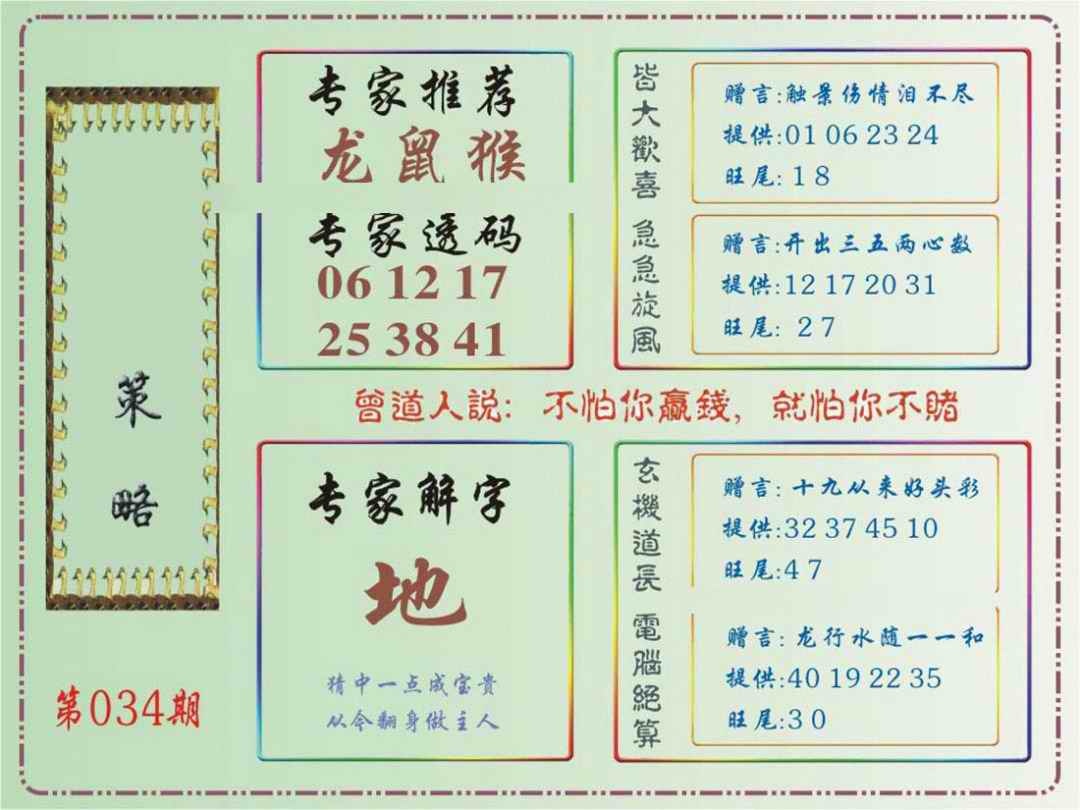 策略
第034期
专家推荐
龙鼠猴
专家透码
06 12 17
25 38 41
皆大歡喜
赠言:触景伤情泪不尽
提供:01 06 23 24
旺尾: 1 8
急急旋風
赠言:开出三五两心数
提供:12 17 20 31
旺尾: 2 7
曾道人説: 不怕你贏錢, 就怕你不賭
专家解字
地
猜中一点成宝贵
从今翻身做主人
玄機道長
赠言: 十九从来好头彩
提供:32 37 45 10
旺尾:4 7
電腦絕算
赠言: 龙行水随一一和
提供:40 19 22 35
旺尾:3 0